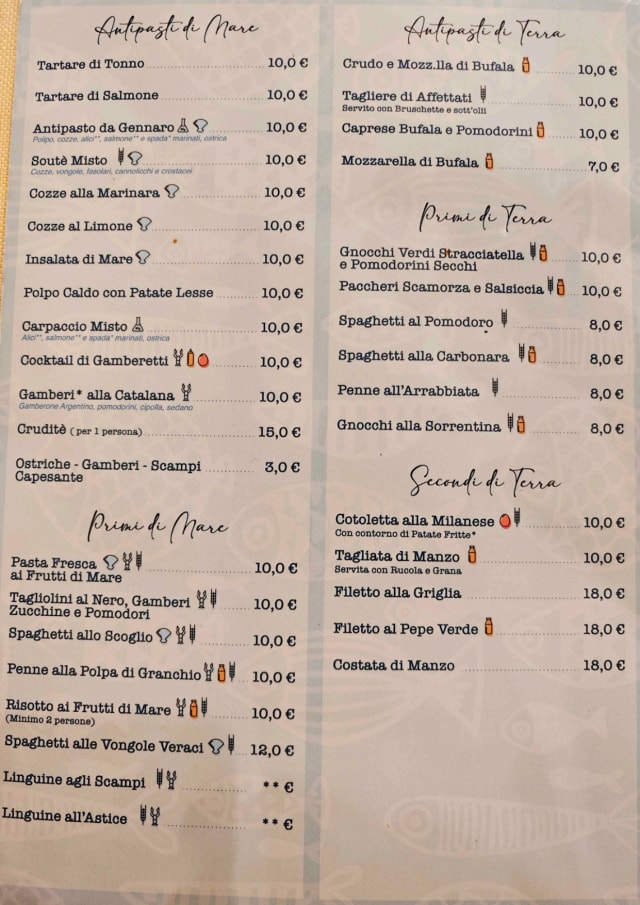 Antipasti di Mare
Tartare di Tonno 10,0 €
Tartare di Salmone 10,0 €
Antipasto da Gennaro 10,0 €
Polipo, cozze, alici**, salmone** e spada* marinati, ostrica
Soutè Misto 10,0 €
Cozze, vongole, fasolari, cannolicchi e crostacei
Cozze alla Marinara 10,0 €
Cozze al Limone 10,0 €
Insalata di Mare 10,0 €
Polpo Caldo con Patate Lesse 10,0 €
Carpaccio Misto 10,0 €
Alici**, salmone** e spada* marinati, ostrica
Cocktail di Gamberetti 10,0 €
Gamberi* alla Catalana 10,0 €
Gamberone Argentino, pomodorini, cipolla, sedano
Cruditè (per 1 persona) 15,0 €
Ostriche - Gamberi - Scampi 3,0 €
Capesante
Primi di Mare
Pasta Fresca
ai Frutti di Mare 10,0 €
Tagliolini al Nero, Gamberi 10,0 €
Zucchine e Pomodori
Spaghetti allo Scoglio 10,0 €
Penne alla Polpa di Granchio 10,0 €
Risotto ai Frutti di Mare 10,0 €
(Minimo 2 persone)
Spaghetti alle Vongole Veraci 12,0 €
Linguine agli Scampi ** €
Linguine all'Astice ** €
Antipasti di Terra
Crudo e Mozz.lla di Bufala 10,0 €
Tagliere di Affettati 10,0 €
Servito con Bruschette e sott'olii
Caprese Bufala e Pomodorini 10,0 €
Mozzarella di Bufala 7,0 €
Primi di Terra
Gnocchi Verdi Stracciatella 10,0 €
e Pomodorini Secchi
Paccheri Scamorza e Salsiccia 10,0 €
Spaghetti al Pomodoro 8,0 €
Spaghetti alla Carbonara 8,0 €
Penne all'Arrabbiata 8,0 €
Gnocchi alla Sorrentina 8,0 €
Secondi di Terra
Cotoletta alla Milanese 10,0 €
Con contorno di Patate Fritte*
Tagliata di Manzo 10,0 €
Servita con Rucola e Grana
Filetto alla Griglia 18,0 €
Filetto al Pepe Verde 18,0 €
Costata di Manzo 18,0 €